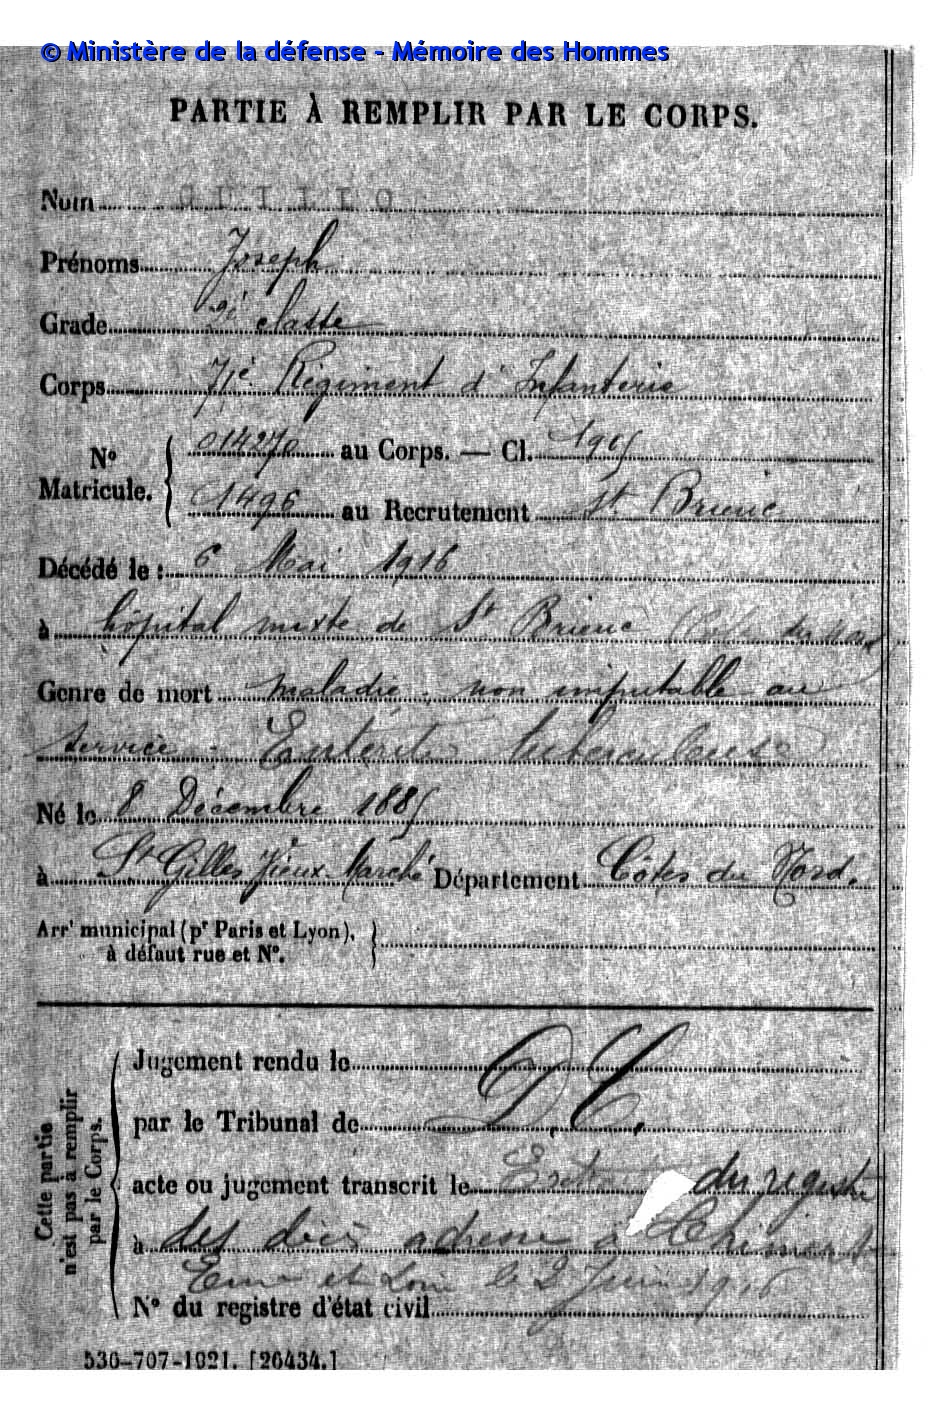 © Ministère de la défense - Mémoire des Hommes
PARTIE À REMPLIR PAR LE CORPS.
Nom
Prénoms Joseph
Grade 2è classe
Corps 71è Régiment d'Infanterie
N° Matricule. { 014270 au Corps. — Cl. 1905
1496 au Recrutement St Brieuc
Décédé le : 6 Mai 1916
à hôpital mixte de St Brieuc (Côtes du Nord)
Genre de mort maladie non imputable au
service - Entérite tuberculeuse
Né le 8 Décembre 1885
à St Gilles Vieux Marché Département Côtes du Nord.
Arrt municipal (pr Paris et Lyon), à défaut rue et N°. }
Cette partie n'est pas à remplir par le Corps.
Jugement rendu le
par le Tribunal de D.C.
acte ou jugement transcrit le du registre
à des décès adressé à
et Loir le 2 Juin 1916
N° du registre d'état civil
536-707-1921. [26434.]